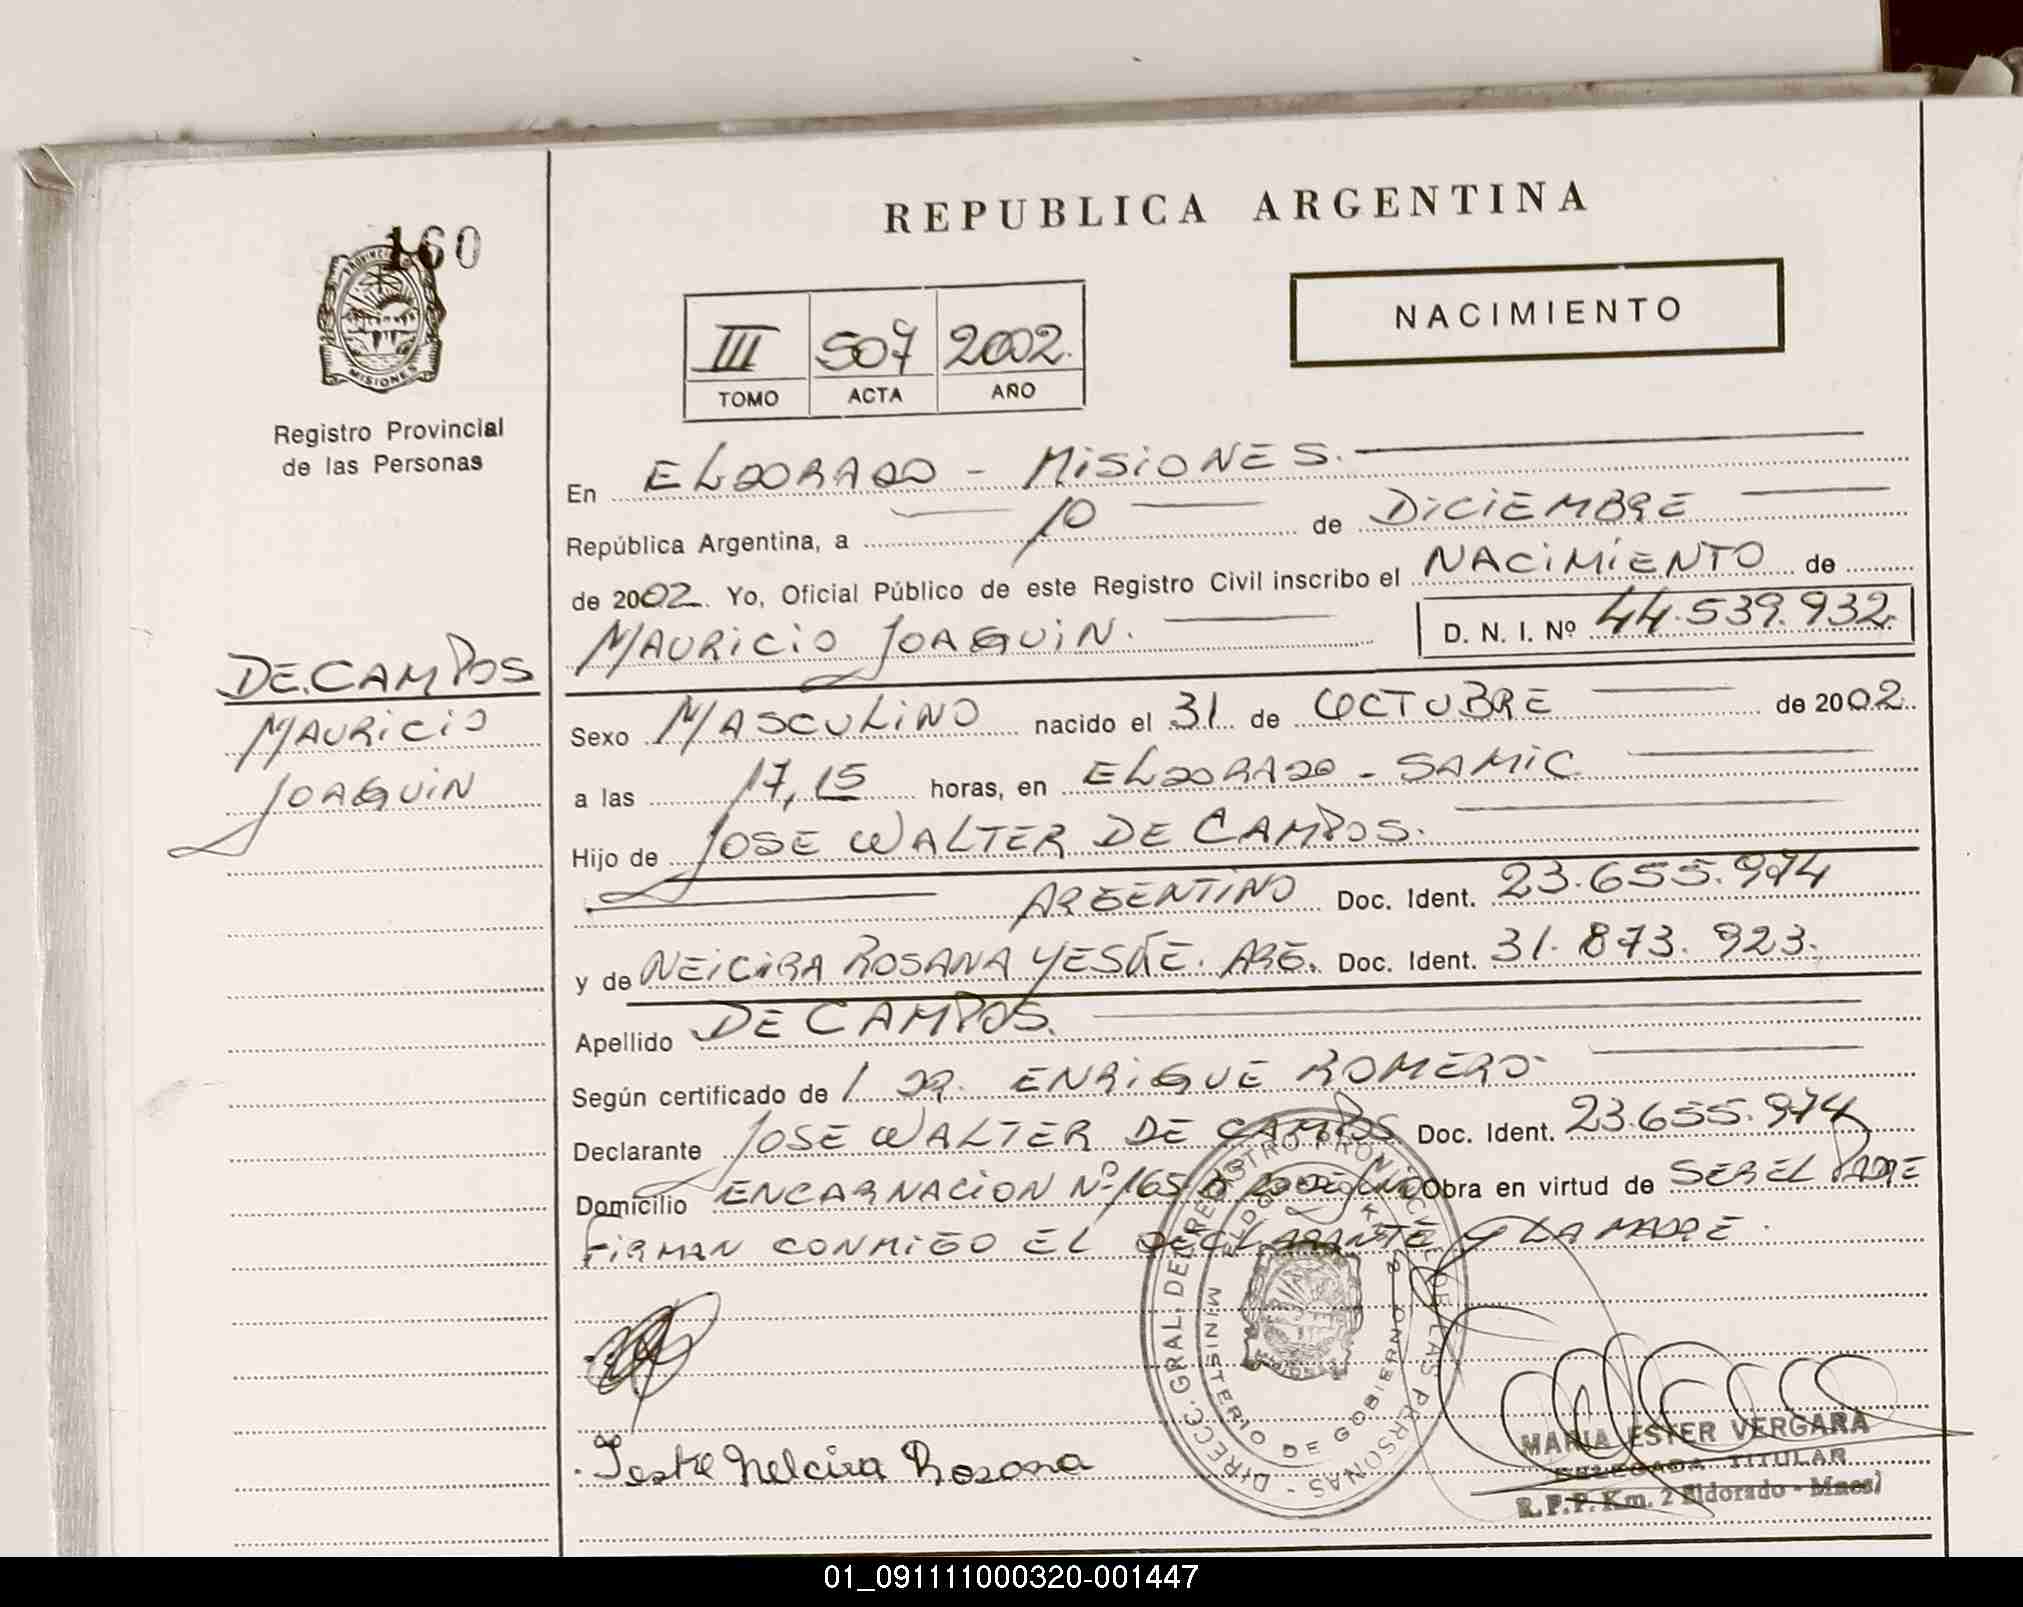 REPUBLICA ARGENTINA
160
PROVINCIA
MISIONES
Registro Provincial
de las Personas
NACIMIENTO
III 507 2002.
TOMO ACTA AÑO
En ELDORADO - MISIONES.
República Argentina, a 10 de DICIEMBRE
de 2002. Yo, Oficial Público de este Registro Civil inscribo el NACIMIENTO de
MAURICIO JOAQUIN. D. N. I. Nº 44.539.932.
DE CAMPOS
MAURICIO
JOAQUIN
Sexo MASCULINO nacido el 31 de OCTUBRE de 2002.
a las 17,15 horas, en ELDORADO - SAMIC
Hijo de JOSE WALTER DE CAMPOS.
ARGENTINO Doc. Ident. 23.655.974
y de ROSANA ARG. Doc. Ident. 31.873.923.
Apellido DE CAMPOS.
Según certificado de DR. ENRIQUE ROMERO
Declarante JOSE WALTER DE CAMPOS Doc. Ident. 23.655.974
Domicilio ENCARNACION Nº 165 Obra en virtud de SER EL PADRE
FIRMAN CONMIGO EL DECLARANTE Y LA MADRE.
DIRECC. GRAL. DE REGISTRO PROVINCIAL DE LAS PERSONAS -
MINISTERIO DE GOBIERNO
ELDORADO KM. 2
MISIONES
Rosana
MARIA ESTER VERGARA
DELEGADA TITULAR
R.P.P. Km. 2 Eldorado - Mnes)
01_091111000320-001447